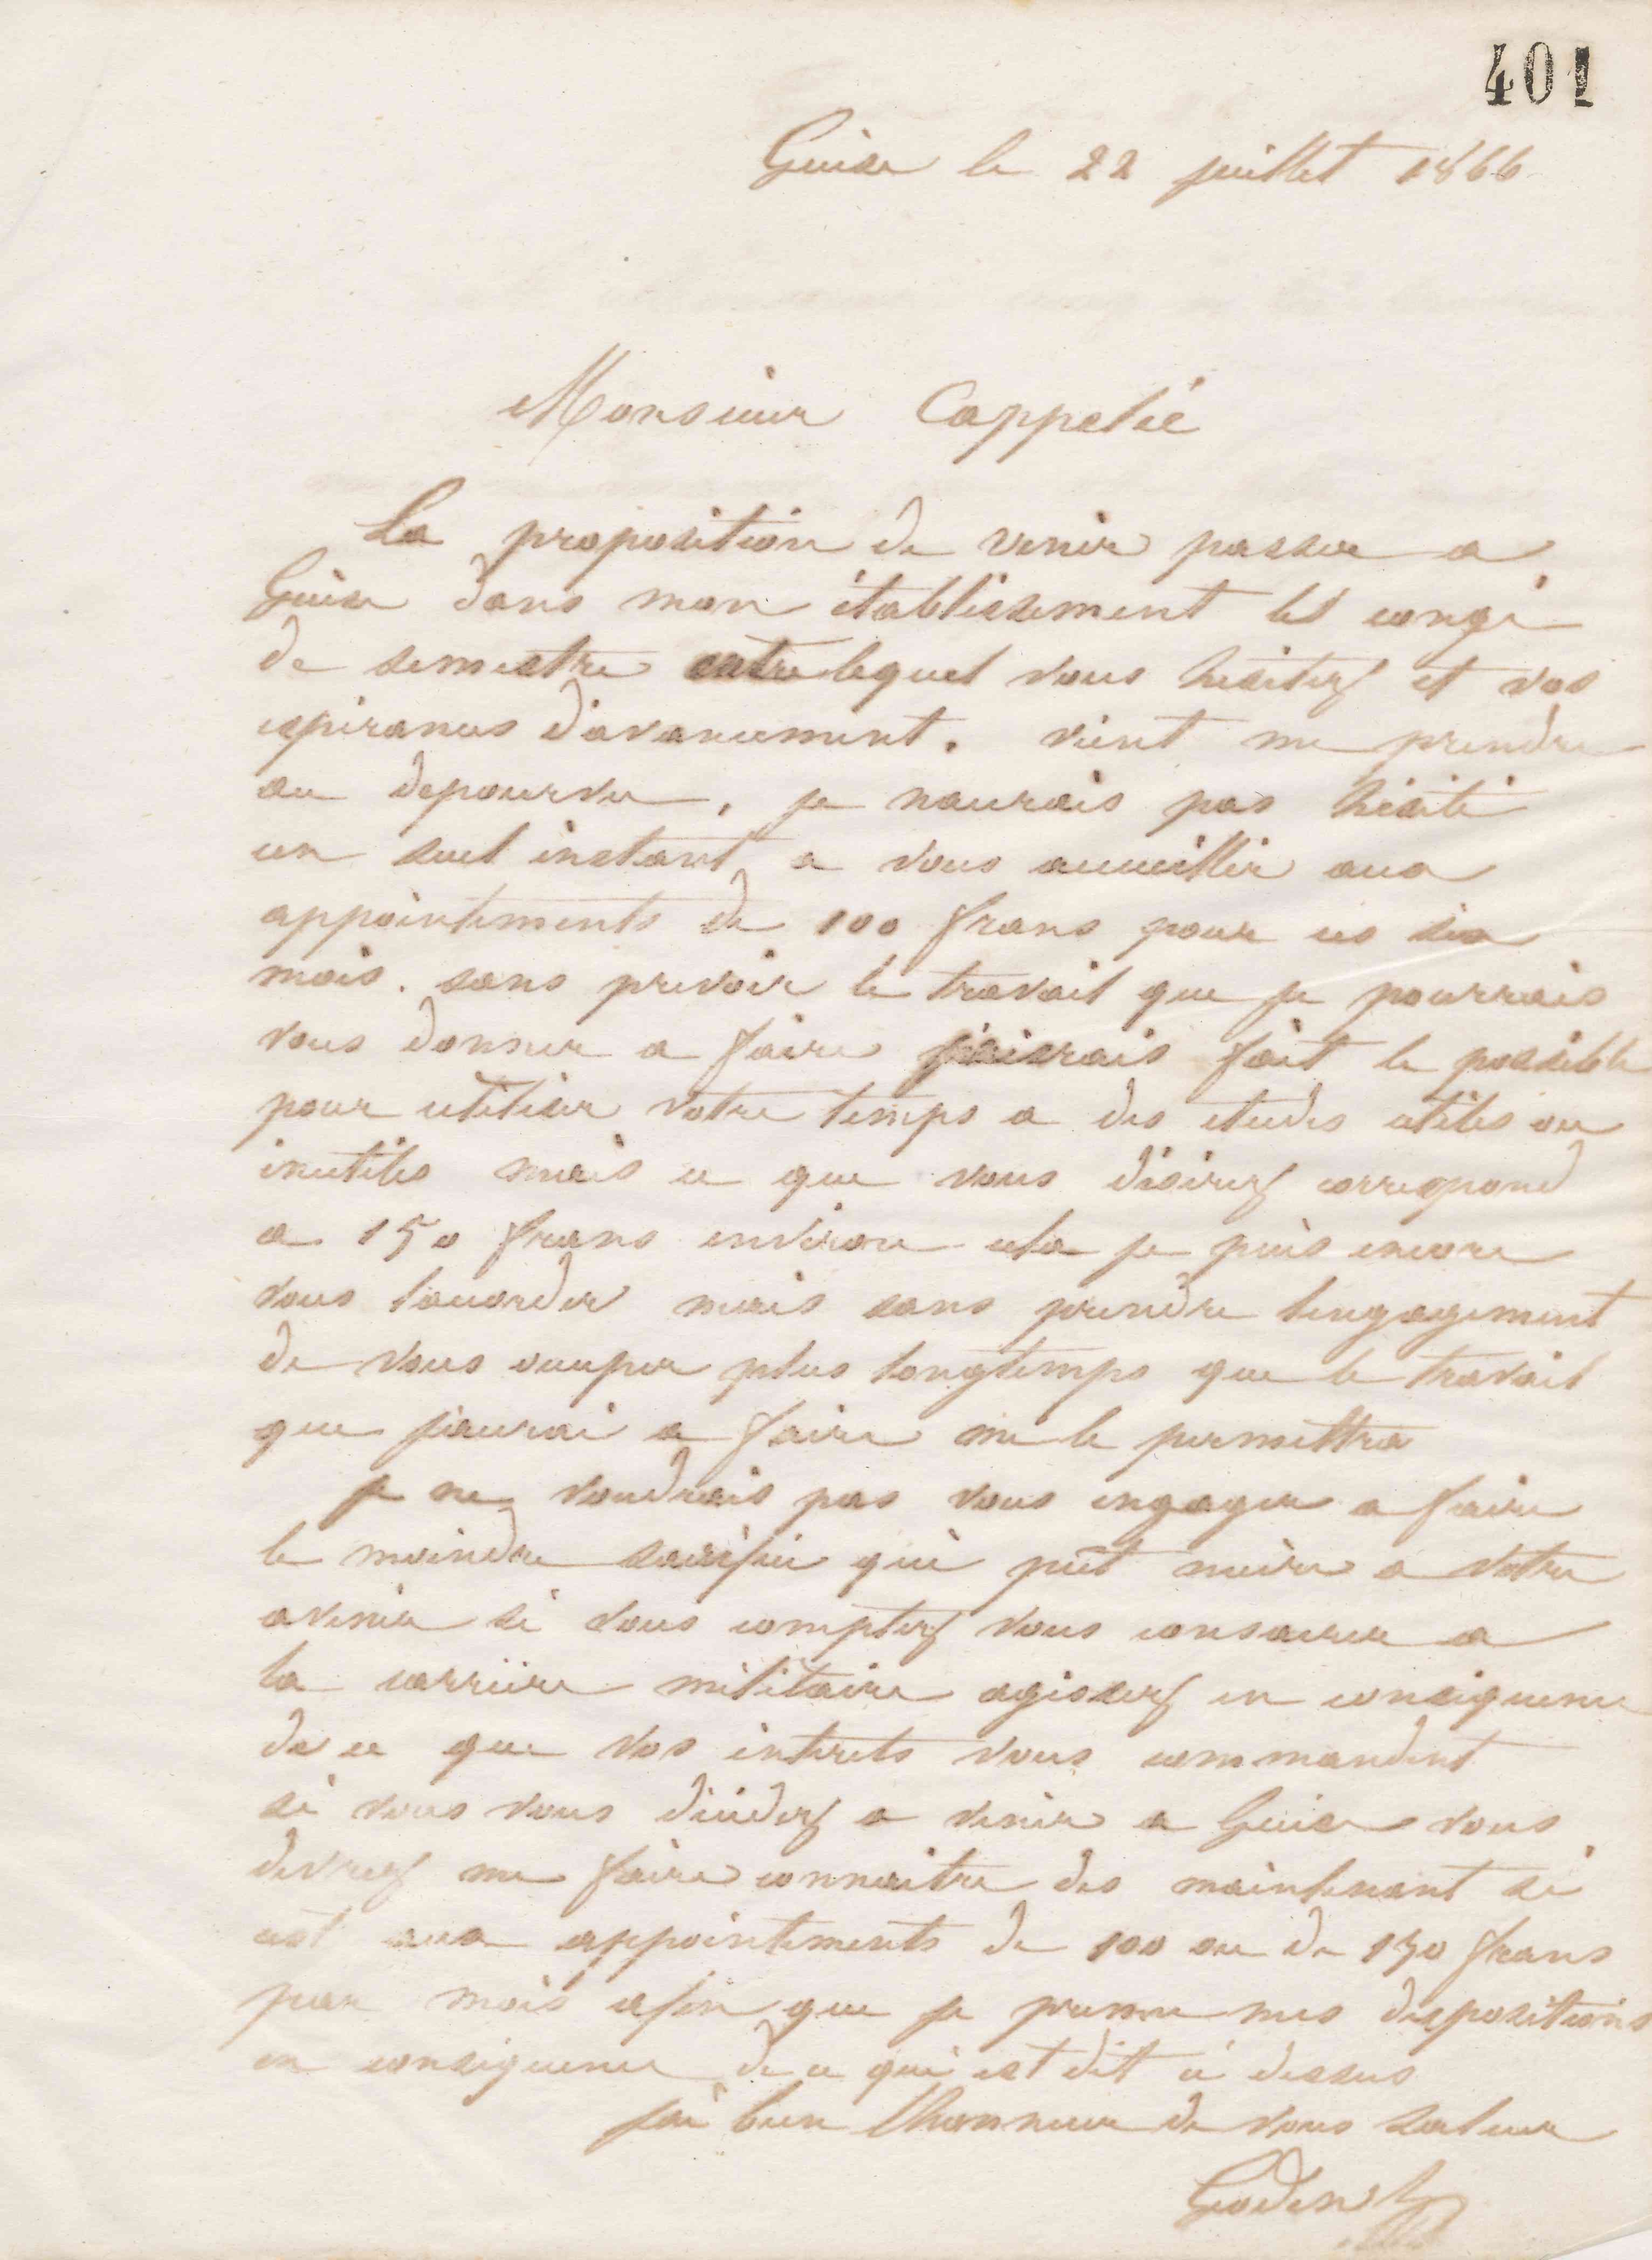 401
Guise le 22 juillet 1866
Monsieur Cappelié
La proposition de venir passer a
Guise dans mon établissement le congé
de semestre entre lequel vous hésitez et vos
espérances d'avancement. vient me prendre
au dépourvu, je naurais pas hésité
un seul instant a vous accueillir aux
appointements de 100 francs pour ces six
mois. sans prévoir le travail que je pourrais
vous donner a faire j'aurais fait le possible
pour utiliser votre temps a des etudes utiles ou
inutiles mais ce que vous désirez correspond
a 150 francs environ cela je puis encore
vous laccorder mais sans prendre lengagement
de vous occuper plus longtemps que le travail
que jaurai a faire me le permettra
je ne voudrais pas vous engager a faire
le moindre sacrifice qui put nuire a votre
avenir si vous comptez vous consacrer a
la carrière militaire agissez en conséquence
de ce que vos intérets vous commandent
si vous vous décidez a venir a Guise vous
devrez me faire connaitre des maintenant si
cest aux appointements de 100 ou de 150 francs
par mois afin que je prenne mes dispositions
en conséquence de ce qui est dit ci dessus
jai bien lhonneur de vous saluer
Godin